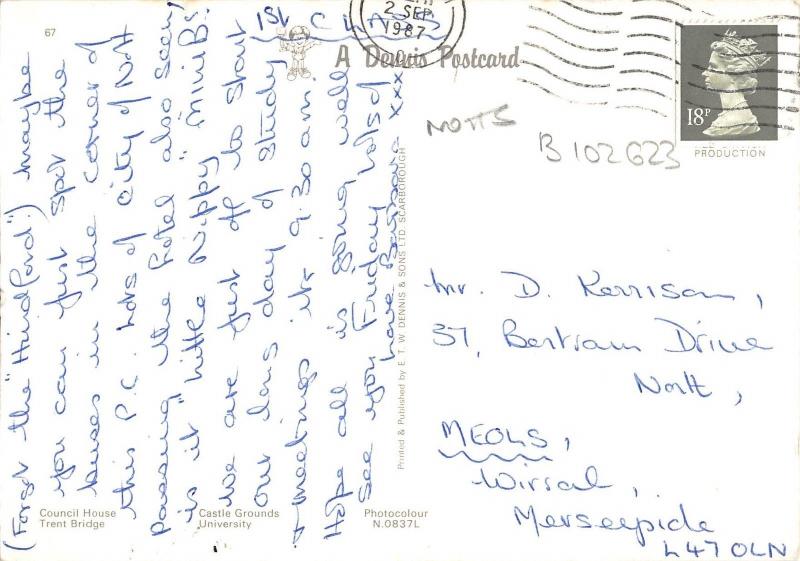 67
A Dennis Postcard
1st CLASS
2 SEP
1987
18P
PRODUCTION
NOTTS
B 102623
(Forgot the "Hindford"!) maybe
you can just spot the
buses in the corner of
this P.C. Lots of City of Nott
passing the hotel also seen,
is it "Little Nippy" MiniBs?
We are just off to start
our long day of study
+ meetings its 9.30 am.
Hope all is going well
see you Friday lots of
love Barbara xxx
Printed & Published by E. T. W. DENNIS & SONS LTD SCARBOROUGH
Mr. D. Kerrison,
37, Bertram Drive
North,
MEOLS,
Wirral,
Merseyside
L47 0LN
Council House
Trent Bridge
Castle Grounds
University
Photocolour
N.0837L